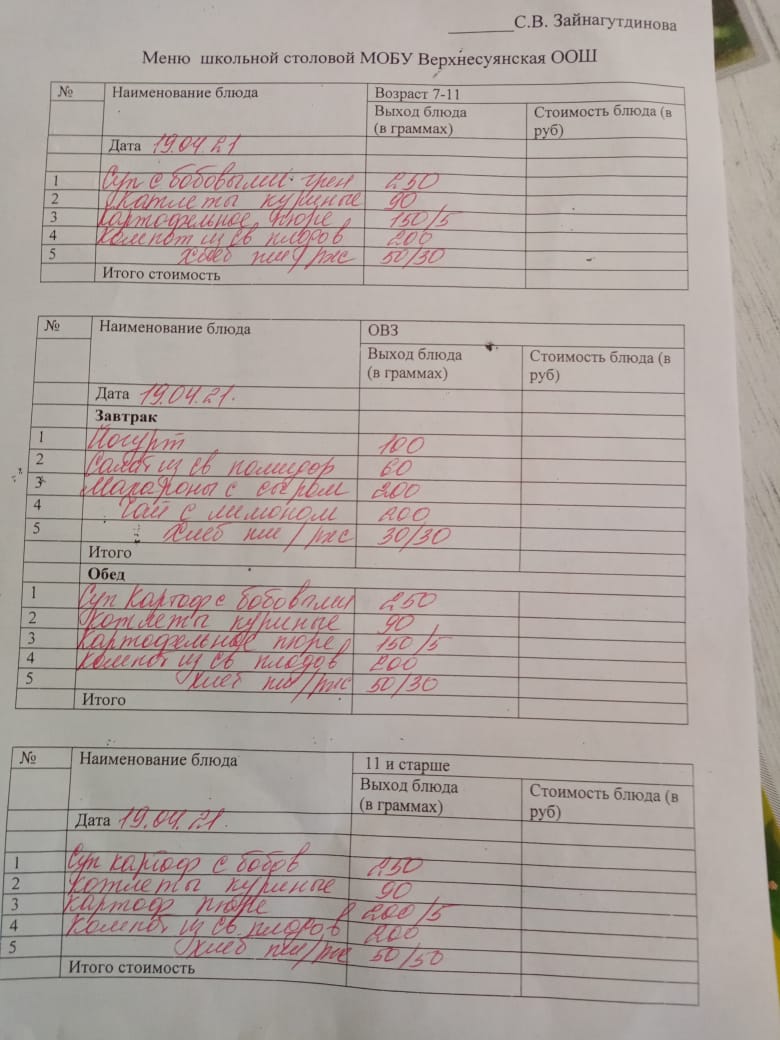 ______С.В. Зайнагутдинова
Меню школьной столовой МОБУ Верхнесуянская ООШ
№ Наименование блюда Возраст 7-11
Выход блюда (в граммах) Стоимость блюда (в руб)
Дата 19.04.21
1 Суп с бобовыми грен 250
2 Котлеты куриные 90
3 Картофельное пюре 150/5
4 Компот из св плодов 200
5 Хлеб пш/рж 50/30
Итого стоимость
№ Наименование блюда ОВЗ
Выход блюда (в граммах) Стоимость блюда (в руб)
Дата 19.04.21.
Завтрак
1 Йогурт 100
2 Салат из св помидор 60
3 Макароны с сыром 200
4 Чай с лимоном 200
5 Хлеб пш/рж 30/30
Итого
Обед
1 Суп картоф с бобовыми 250
2 Котлеты куриные 90
3 Картофельное пюре 150/5
4 Компот из св плодов 200
5 Хлеб пш/рж 50/30
Итого
№ Наименование блюда 11 и старше
Выход блюда (в граммах) Стоимость блюда (в руб)
Дата 19.04.21.
1 Суп картоф с бобов 250
2 Котлеты куриные 90
3 Картоф пюре 200/5
4 Компот из св плодов 200
5 Хлеб пш/рж 50/50
Итого стоимость